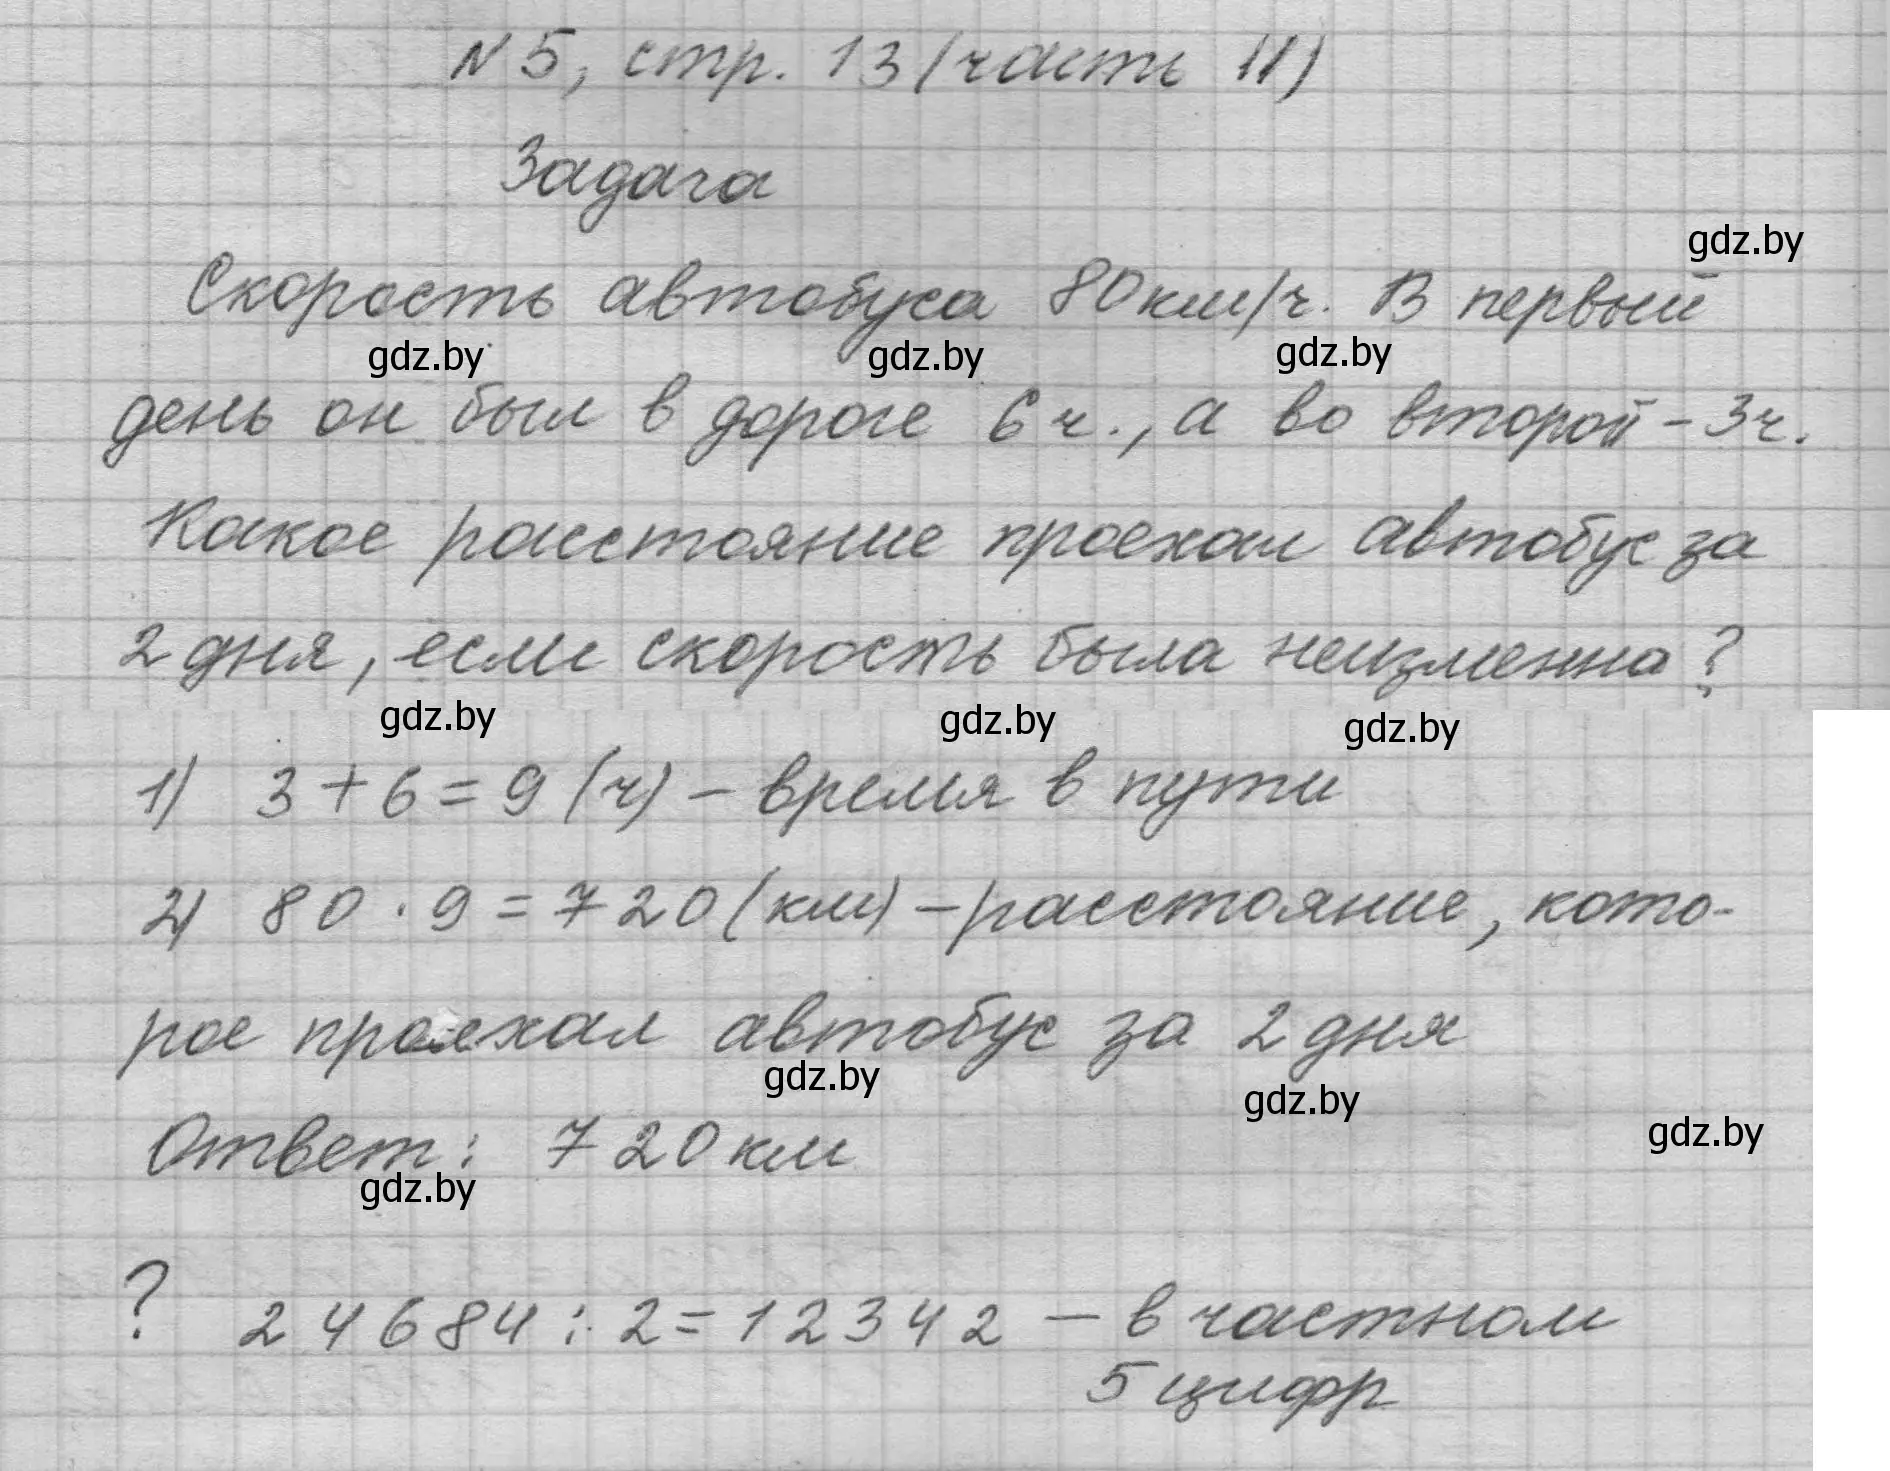 № 5, стр. 13 (часть II)
Задача
gdz.by
Скорость автобуса 80 км/ч. В первый
gdz.by gdz.by gdz.by
день он был в дороге 6 ч., а во второй - 3 ч.
Какое расстояние проехал автобус за
2 дня, если скорость была неизменна?
gdz.by gdz.by gdz.by
1) 3 + 6 = 9 (ч) - время в пути
2) 80 · 9 = 720 (км) - расстояние, кото-
рое проехал автобус за 2 дня
gdz.by gdz.by gdz.by
Ответ: 720 км
gdz.by
? 24684 : 2 = 12342 - в частном
5 цифр